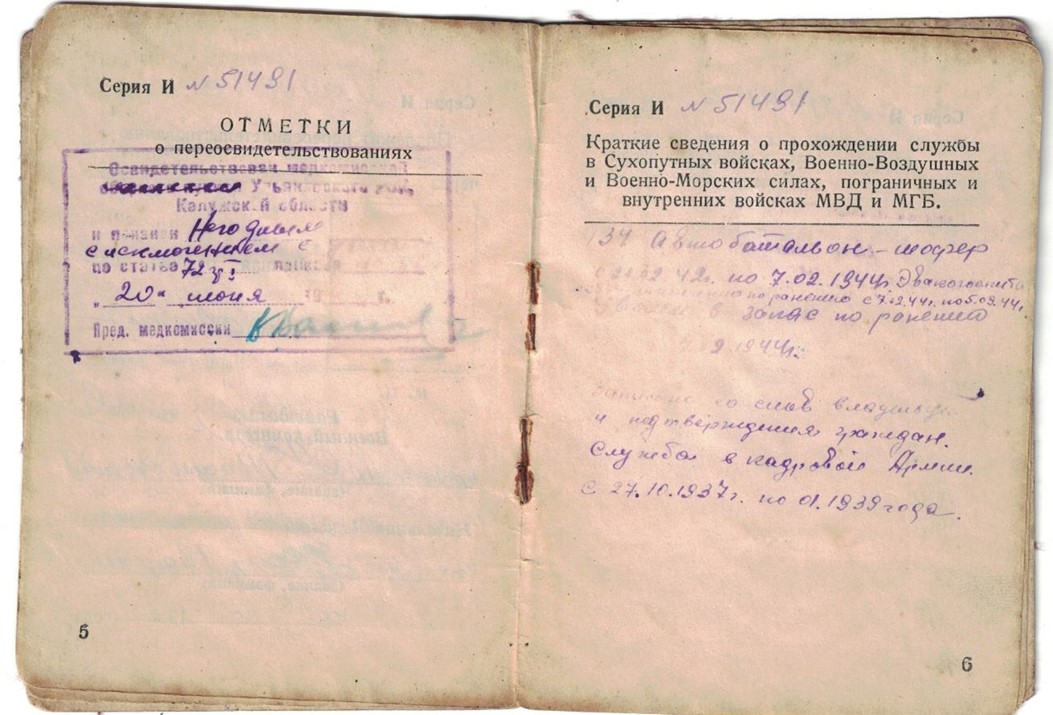 Серия И № 51491
ОТМЕТКИ
о переосвидетельствованиях
Освидетельствован медкомиссией
Ульяновского
Калужской области
и признан Негодным
с исключением с
по статье 72
„20“ июня г.
Пред. медкомиссии
5
Серия И № 51491
Краткие сведения о прохождении службы
в Сухопутных войсках, Военно-Воздушных
и Военно-Морских силах, пограничных и
внутренних войсках МВД и МГБ.
134 Автобатальон – шофер
по 7.02.1944г. Эвакогоспиталь
по ранению с 7.2.44г. по 5.09.44г.
в запас по ранению
9.1944г.
со слов владельца
и подтверждения граждан.
Служба в кадровой Армии.
с 27.10.1937г. по 01.1939 года.
6